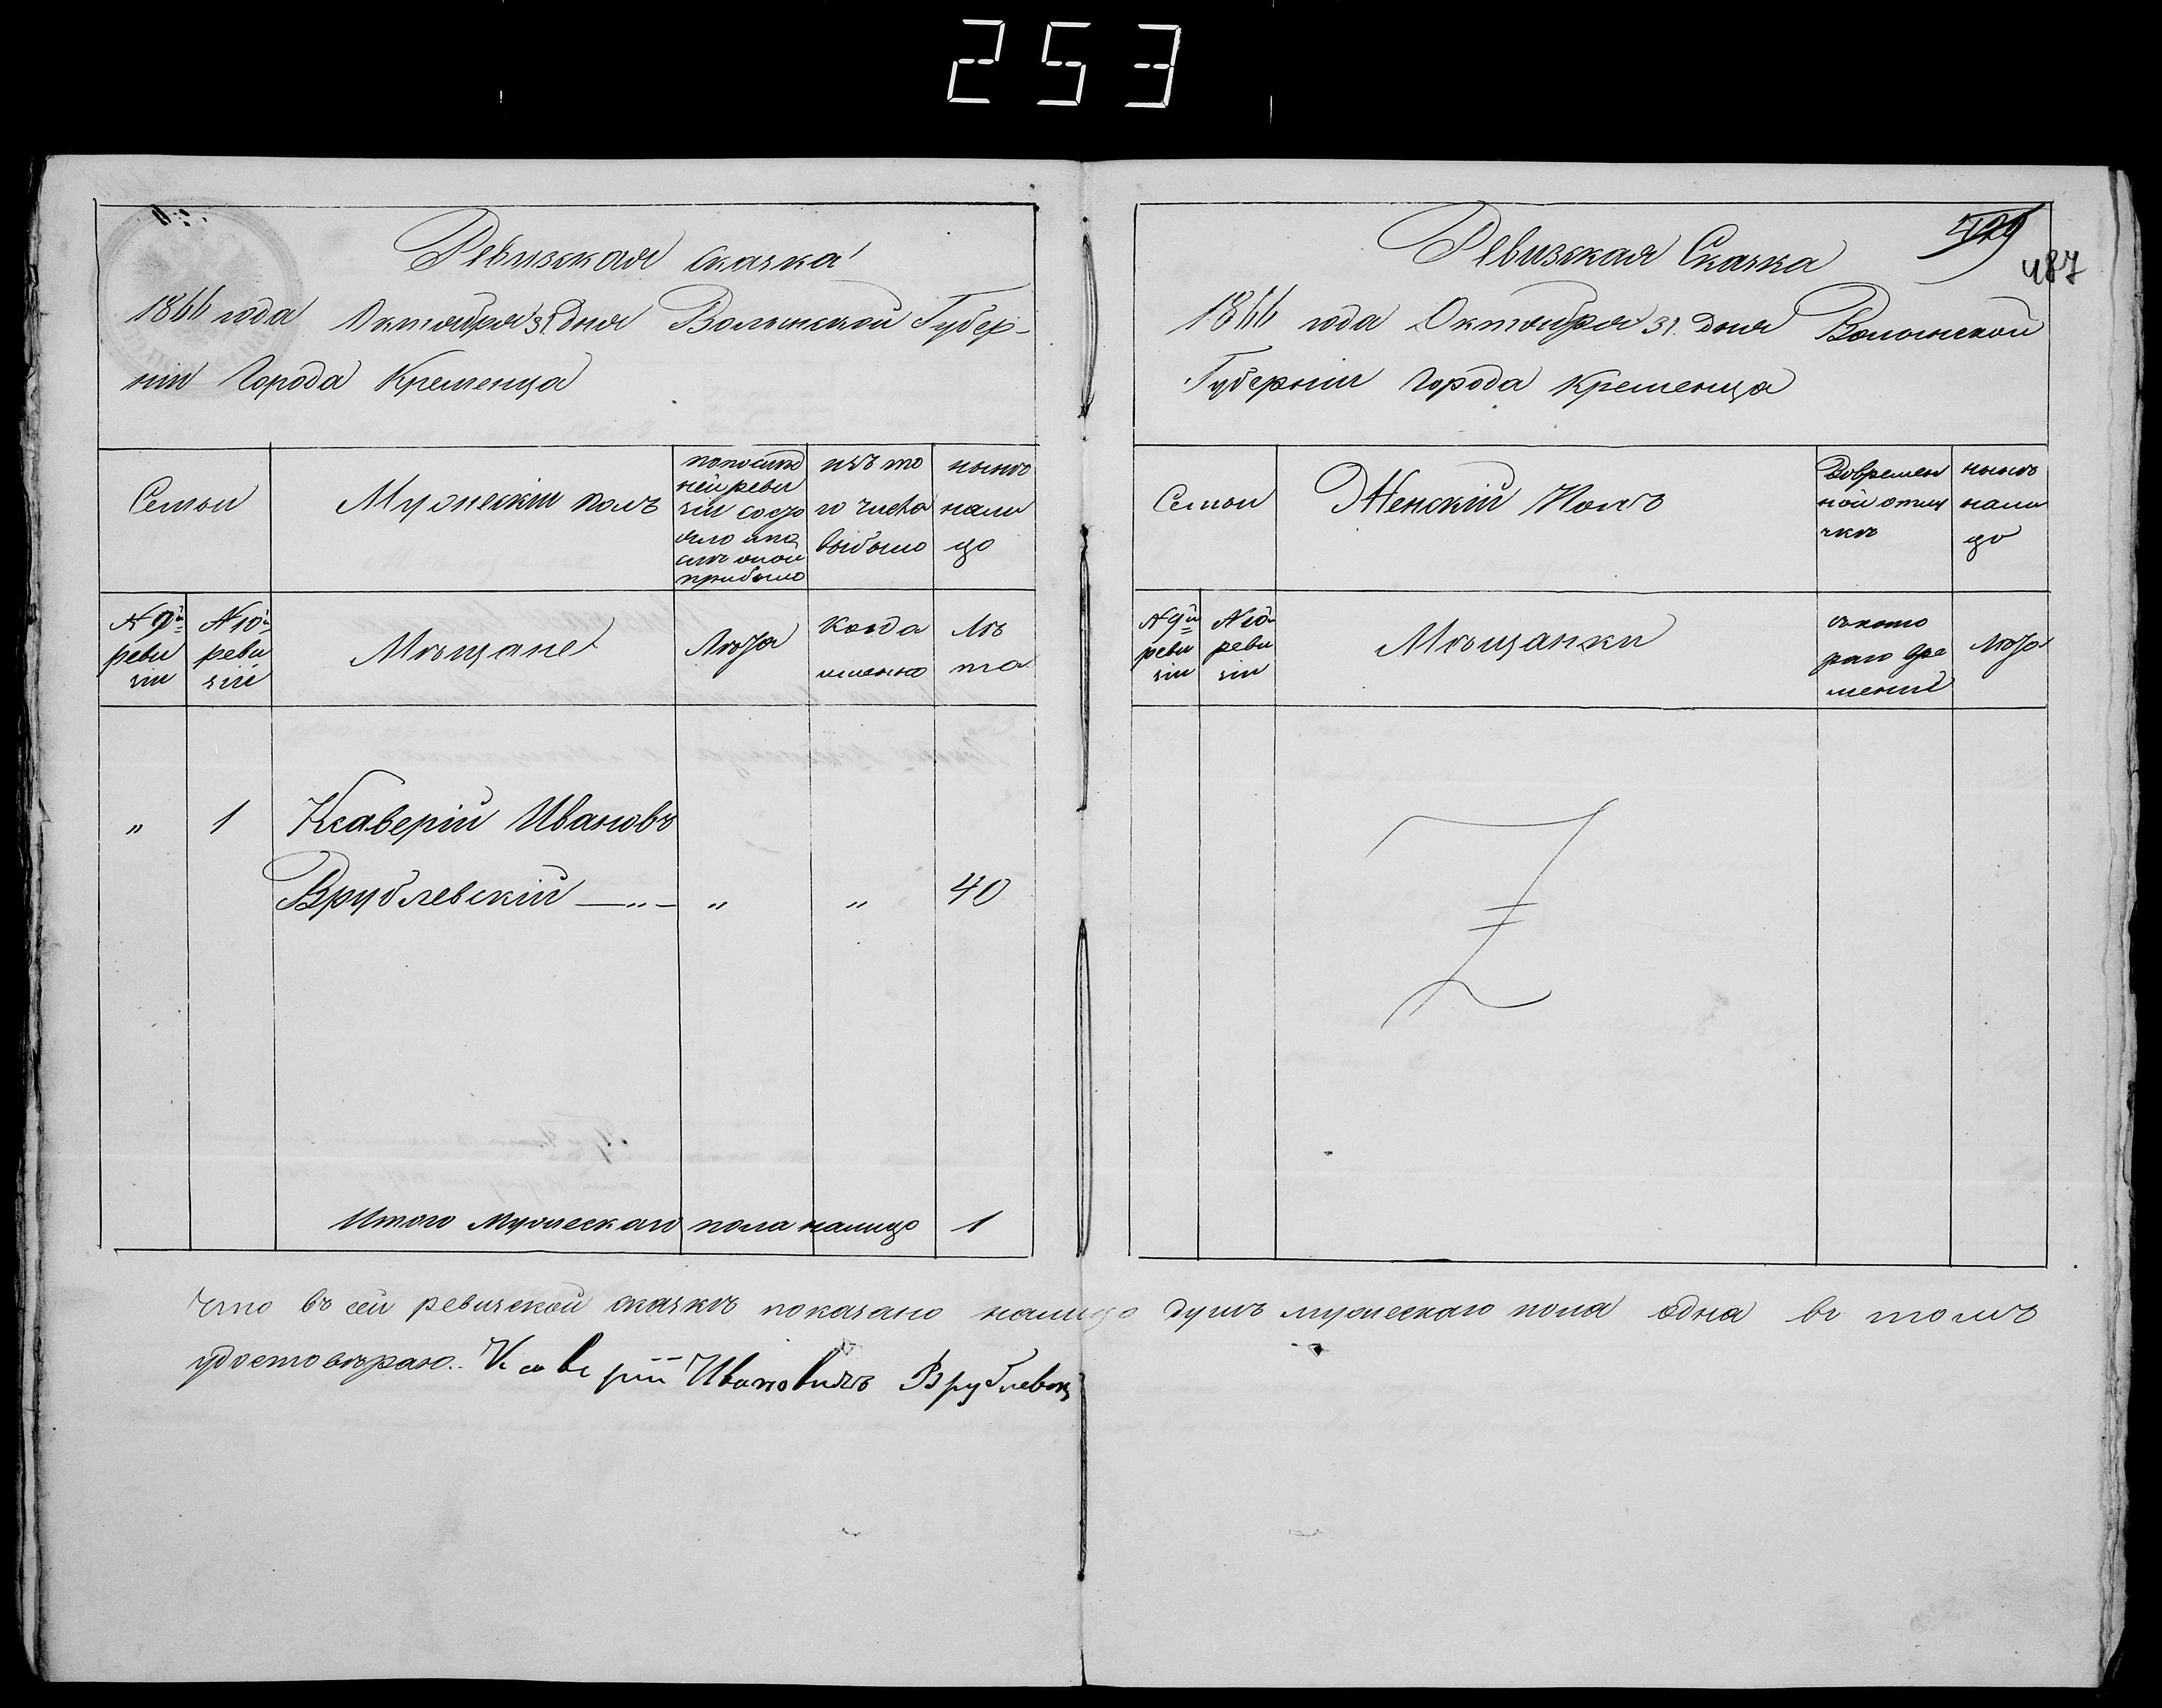 253
Ревизская сказка
1866 года Октября 31 дня Волынской Губер-
ніи Города Кременца
Семьи
Мужескій полъ
по послѣд
ней реви
зіи состо
яло и по
слѣ оной
прибыло
изъ то
го числа
выбыло
нынѣ
нали
цо
№ 9й
реви
зіи
№ 10й
реви
зіи
Мѣщане
Лѣта
когда
именно
Лѣ
та
„ 1 Ксаверій Ивановъ
Врублевскій —„— „ „ 40
Итого мужескаго пола налицо 1
Ревизская Сказка
487
1866 года Октября 31. дня Волынской
Губерніи Города Кременца
Семьи
Женскій Полъ
Во времен
ной отлу
чкѣ
нынѣ
нали
цо
№ 9й
реви
зіи
№ 10й
реви
зіи
Мѣщанки
съ кото
раго вре
мени
Лѣта
Что въ сей ревизской сказкѣ показано налицо душъ мужескаго пола одна въ томъ
удостовѣряю. Ксаверій Ивановичъ Врублевск